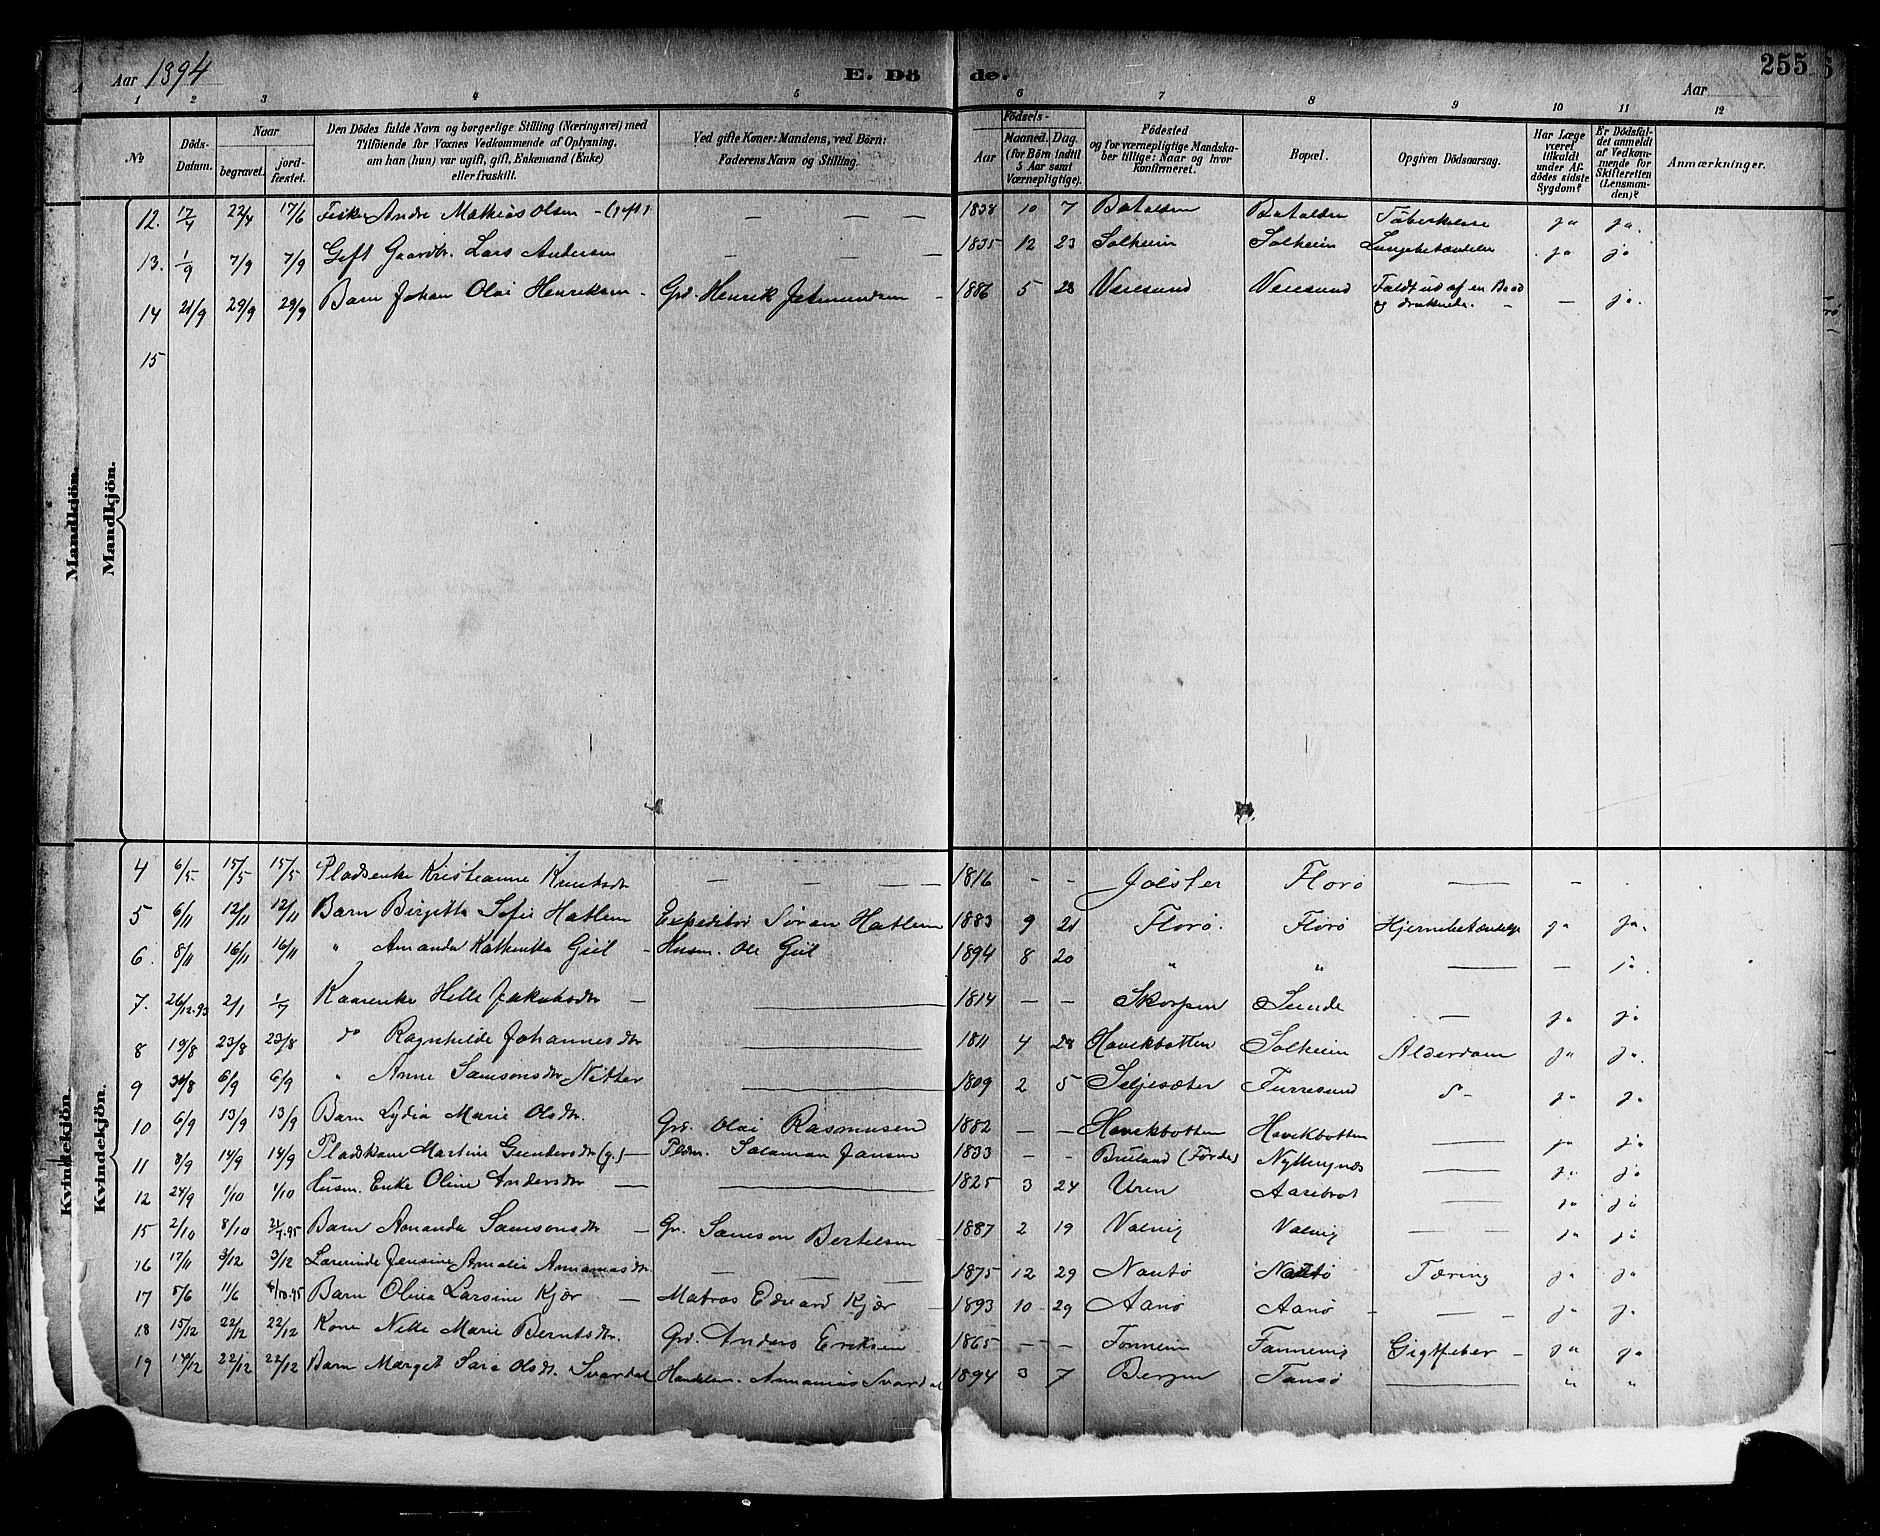 Aar 1894
E. Dö
de.
Aar
255
1 2 3 4 5 6 7 8 9 10 11 12
No
Döds-Datum.
Naar
begravet.
jord-fæstet.
Den Dödes fulde Navn og borgerlige Stilling (Næringsvei) med
Tilföiende for Voxnes Vedkommende af Oplysning,
om han (hun) var ugift, gift, Enkemand (Enke)
eller fraskilt.
Ved gifte Koner: Mandens, ved Börn:
Faderens Navn og Stilling.
Födsels-
Aar
Maaned. Dag.
(for Börn indtil
5 Aar samt
Værnepligtige).
Födested
og for værnepligtige Mandska-
ber tillige: Naar og hvor
konfirmeret.
Bopæl.
Opgiven Dödsaarsag.
Har Læge
været
tilkaldt
under Af-
dödes sidste
Sygdom?
Er Dödsfal-
det anmeldt
af Vedkom-
mende for
Skifteretten
(Lensman-
den)?
Anmærkninger.
Mandkjön.
Mandkjön.
12. 17/4 22/4 17/6 Fisker Andre Mathias Olsen - (gift) — — — 1838 10 7 Batalden Batalden Tuberkulose ja ja.
13. 1/9 7/9 7/9 Gift Gaardbr. Lars Andersen — — — 1835 12 23 Solheim Solheim Lungebetændelse ja ja
14 21/9 29/9 29/9 Barn Johan Olai Henriksen - Grd. Henrik Jetmundsen - 1886 5 28 Væresund Væresund Faldt ud af en Baad
og druknede. - — ja.
15
Kvindekjön.
Kvindekjön.
4 6/5 15/5 15/5 Pladsenke Kristianne Knutsdtr — — — — 1816 - - Jölster Florö — -
5 6/11 12/11 12/11 Barn Birgitta Sofie Hatlem Expeditör Søran Hatlem 1883 9 21 Florö. Florö Hjernebetændelse ja ja.
6. 8/11 16/11 16/11 " Amanda Kathentta Giil - Husm. Ole Giil 1894 8 20 " " — — ja.
7. 26/12.93 2/1 1/7 Kaarenke Helle Jakobsdtr — — 1814 - - Skorpen Sunde — ja ja
8 19/8 23/8 23/8 do Ragnhilde Johannesdtr — 1811 4 28 Havikbotten Solheim Alderdom ja ja.
9 30/8 6/9 6/9 " Anne Samsonsdtr Nitter — 1809 2 5 Seljesæter Furresund — ja ja
10 6/9 13/9 13/9 Barn Lydia Marie Olsdtr. Grd. Olai Rasmusen 1882 - - Havikbotten Havikbotten — ja ja
11 8/9 14/9 14/9 Pladskone Martine Gundersdtr (g.) — Pldm. Salamon Jansen 1833 - - Bruland (Förde) Nyttingnæs — ja ja
12 24/9 1/10 1/10 Husm. Enke Oline Andersdtr — — 1825 3 24 Uren Aarebrot — ja ja
15 2/10 8/10 21/4.95 Barn Amanda Samsonsdtr — Gr. Samson Bertelsen - 1887 2 19 Valvig Valvig — — ja ja
16 17/11 3/12 3/12 Lærerinde Jensine Amalie Annaniasdtr. — — — 1875 12 29 Nautö Nautö Tæring ja ja
17 5/6 11/6 6/10.95 Barn Olivia Larsine Kjær — Matros Edvard Kjær - 1893 10 29 Aanö Aanö - — — ja ja.
18 15/12 22/12 22/12 Kone Nille Marie Berntsdtr. Grd. Anders Eriksen 1865 - - Fannevig Gigtfeber - ja ja
19 14/12 22/12 22/12 Barn Marget Sara Olsdt. Svardal Handelsm. Annanias Svardal 1894 3 7 Bergen Tansö — " "